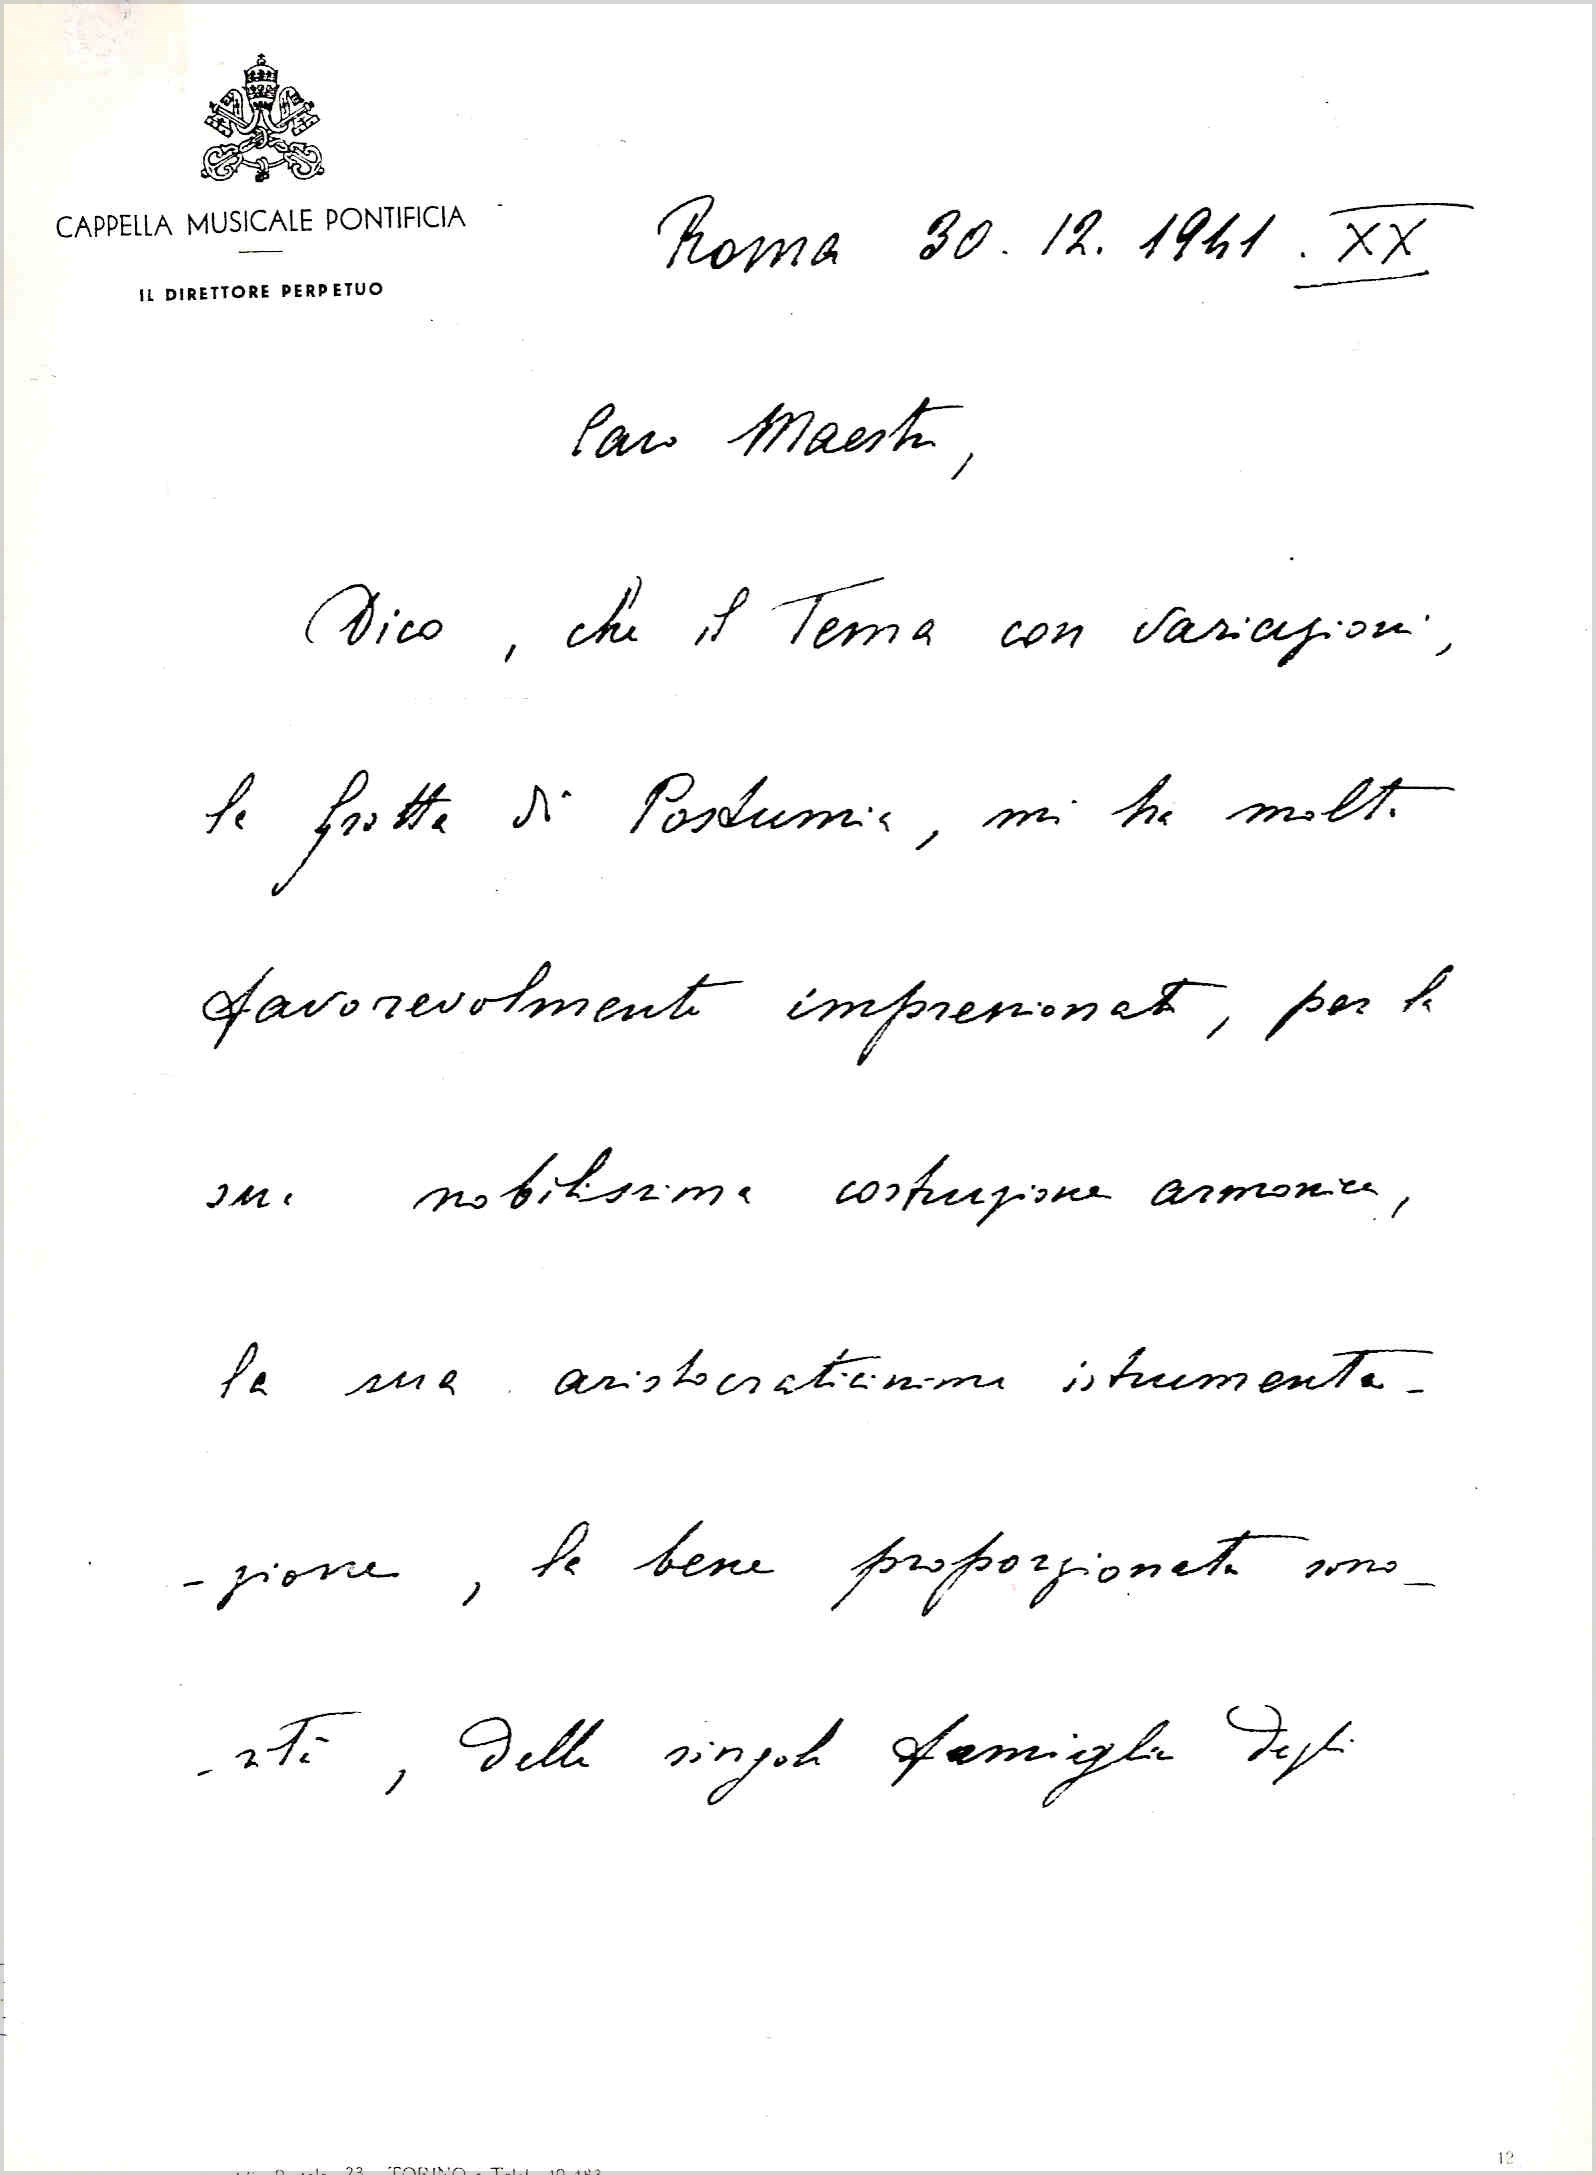 CAPPELLA MUSICALE PONTIFICIA
IL DIRETTORE PERPETUO
Roma 30. 12. 1941. XX
Caro Maestro,
Dico, che il Tema con variazioni,
la grotta di Postumia, mi ha molto
favorevolmente impressionato, per la
sua nobilissima costruzione armonica,
la sua aristocraticissima istrumenta-
-zione, la bene proporzionata sono-
-rità, delle singole famiglie degli
23 - TORINO - Telef.
12